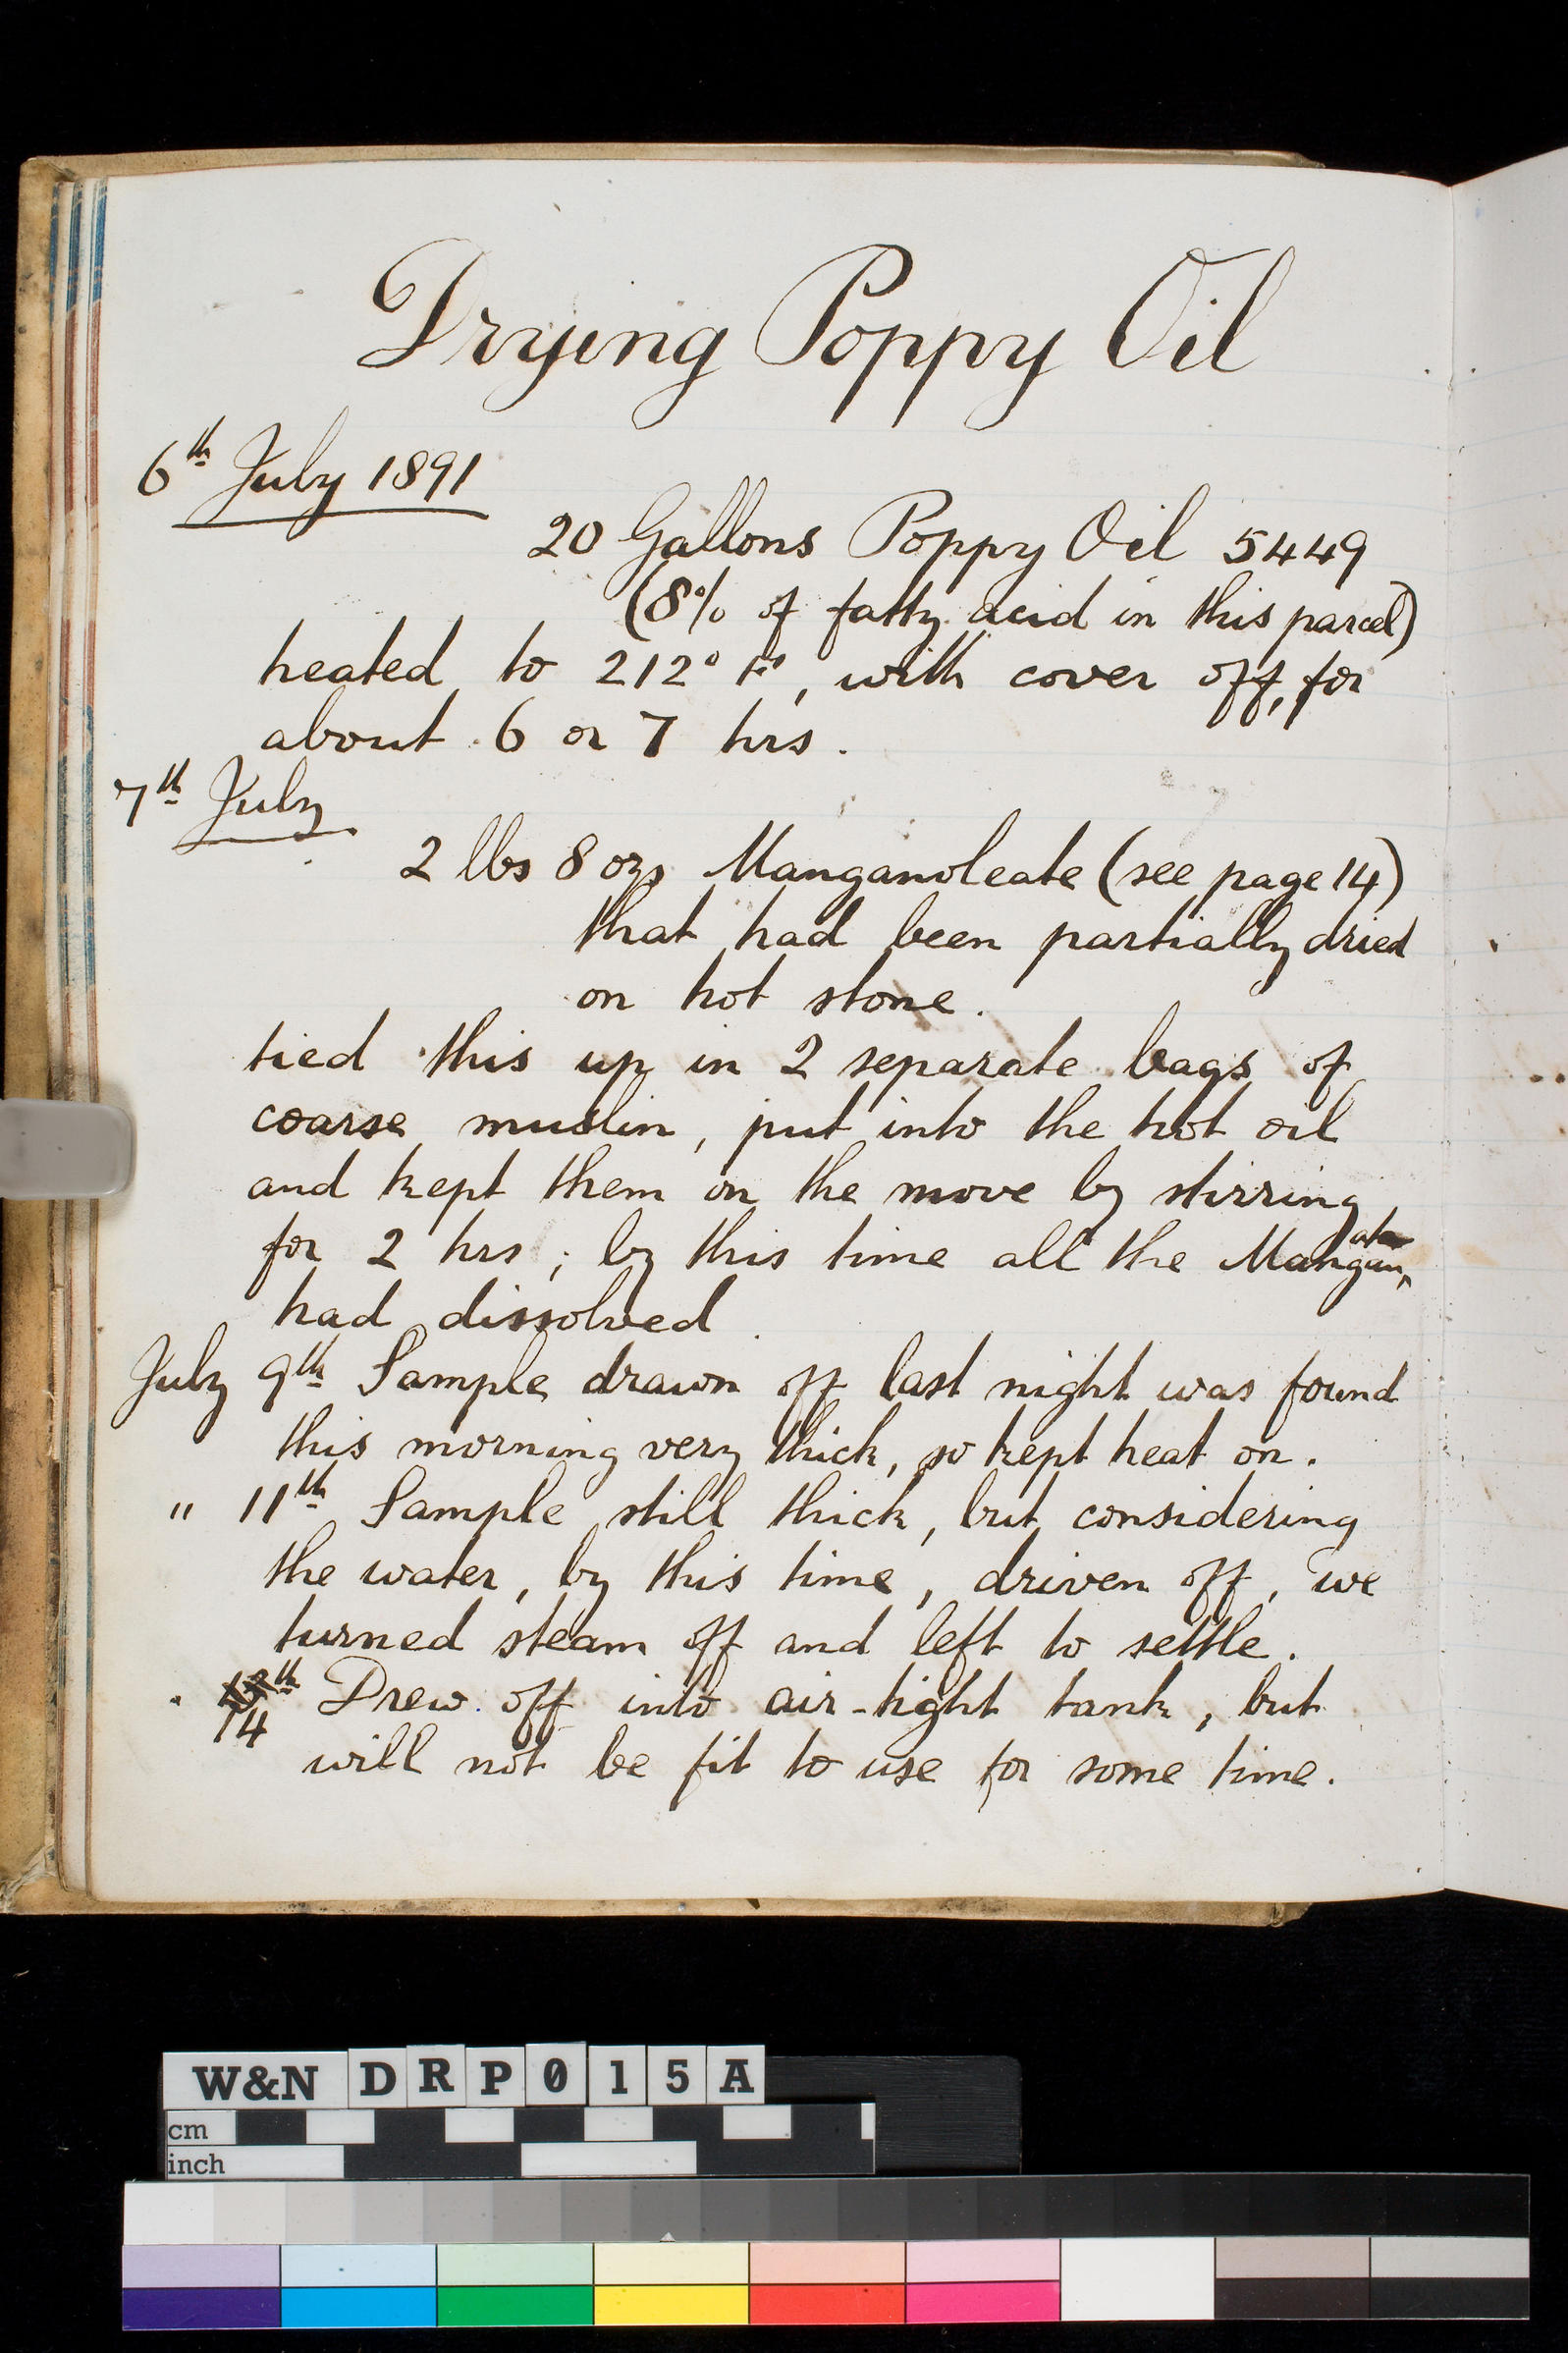 Drying Poppy Oil
6th July 1891
20 Gallons Poppy Oil 5449
(8% of fatty acid in this parcel)
heated to 212° F°, with cover off, for
about 6 or 7 hrs.
7th July
2 lbs 8 ozs Manganoleate (see page 14)
that had been partially dried
on hot stone.
tied this up in 2 separate bags of
coarse muslin, put into the hot oil
and kept them on the move by stirring
for 2 hrs; by this time all the Mangan
had dissolved.
July 9th Sample drawn off last night was found
this morning very thick, so kept heat on.
" 11th Sample still thick, but considering
the water, by this time, driven off, we
turned steam off and left to settle.
" 14th Drew off into air-tight tank, but
will not be fit to use for some time.
W&N DRP015A
cm
inch